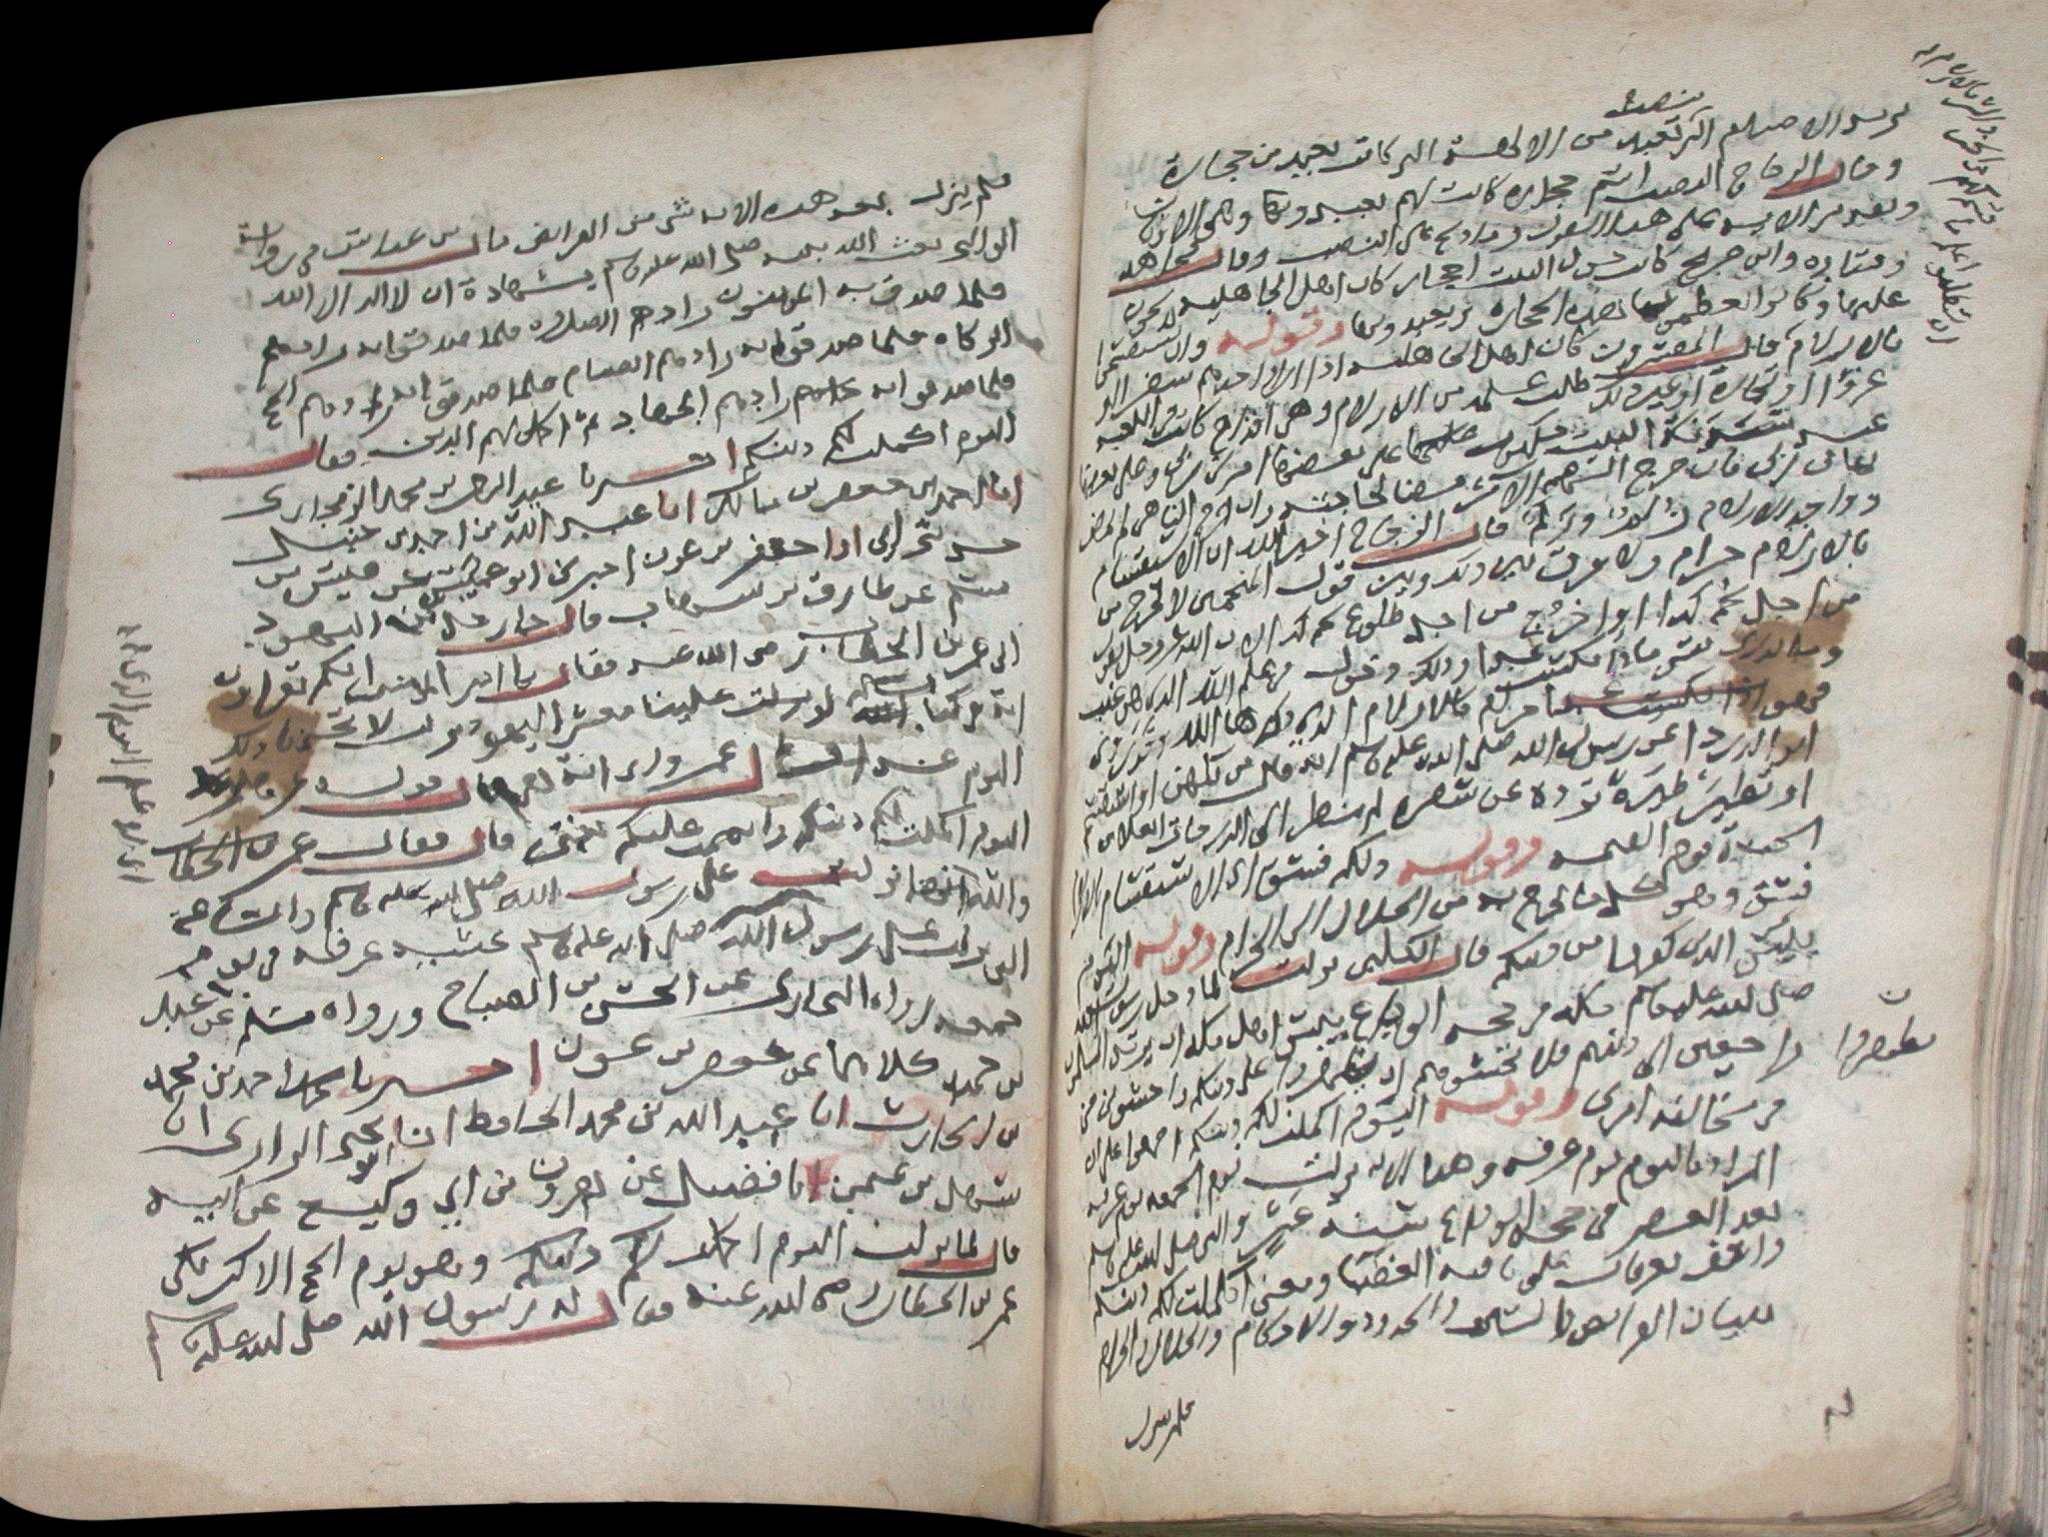 نصبه
يريد الاصنام التي تعبد من الالهة التي كانت تعبد من حجارة
وقال الزجاج النصب اسم حجارة كانت لهم يعبدونها وهي الاوثان
وتقدير الاية على هذا القول وما ذبح على النصب وقال مجاهد
وقتادة وابن جريج كانت حول البيت احجار كان اهل الجاهلية يذبحون
عليها وكانوا يعظمون هذه الحجارة ويعبدونها وقوله وان تستقسموا
بالازلام قال المفسرون كان اهل الجاهلية اذا اراد احدهم سفرا او
غزوا او تجارة او غير ذلك طلب علم من الازلام وهي اقداح كانت في الكعبة
عند سدنة البيت مكتوب على بعضها امرني ربي وعلى بعضها
نهاني ربي فان خرج السهم الامر مضى لحاجته وان خرج الناهي لم يمض
وواحد الازلام زلم وزلم قال الزجاج اعلم الله ان الاستقسام
بالازلام حرام ولا فرق بين ذلك وبين قول المنجمين لا تخرج من
من اجل نجم كذا او اخرج من اجل طلوع نجم كذا لان الله عز وجل يقول
وما تدري نفس ماذا تكسب غدا وذلك دخول في علم الله الذي هو غيب
فهو حرام كالازلام الذي ذكرها الله وقد روى
ابو الدرداء عن رسول الله صلى الله عليه وسلم انه قال من تكهن او استقسم
او تطير طيرة ترده عن سفره لم ينظر الى الدرجات العلا من
الجنة يوم القيمة وقوله ذلكم فسق اي الاستقسام بالازلام
فسق وهو كل ما يخرج به من الحلال الى الحرام وقوله اليوم
يئس الذين كفروا من دينكم قال الكلبي نزلت لما دخل رسول الله
صلى الله عليه وسلم مكة في حجة الوداع يئس اهل مكة ان يرتد المسلمون
راجعين الى دينهم فلا تخشوهم ان يظهروا على دينكم واخشون في
في مخالفة امري وقوله اليوم اكملت لكم دينكم اجمعوا على ان
المراد باليوم يوم عرفة وهذا الاية نزلت يوم الجمعة يوم عرفة
بعد العصر في حجة الوداع سنة عشر والنبي صلى الله عليه وسلم
واقف بعرفات على ناقته العضباء ومعنى اكملت لكم دينكم
ببيان الفرائض والسنن والحدود والاحكام والحلال والحرام
فلم ينزل
يظهروا
فلم ينزل بعد هذه الاية شي من الفرائض قال ابن عباس في رواية
الوالبي بعث الله نبيه صلى الله عليه وسلم بشهادة ان لا اله الا الله
فلما صدق به المؤمنون زادهم الصلاة فلما صدقوا به زادهم
الزكاة فلما صدقوا به زادهم الصيام فلما صدقوا به زادهم الحج
فلما صدقوا به زادهم الجهاد ثم اكمل لهم الدين فقال
اليوم اكملت لكم دينكم اخبرنا عبد الرحمن بن محمد
انا احمد بن جعفر بن مالك انا عبد الله بن احمد بن حنبل
حدثني ابي انا جعفر بن عون اخبرني ابو عميس عن قيس بن
مسلم عن طارق بن شهاب قال جاء رجل من اليهود
الى عمر بن الخطاب رضي الله عنه فقال يا امير المؤمنين انكم تقراون
اية في كتابكم لو نزلت علينا معشر اليهود نزلت لاتخذنا ذلك
اليوم عيدا قال عمر واي اية هي قال قوله عز وجل
اليوم اكملت لكم دينكم واتممت عليكم نعمتي قال فقال عمر بن الخطاب
والله اني لاعلم اليوم الذي نزلت على رسول الله صلى الله عليه وسلم والساعة
التي نزلت على رسول الله صلى الله عليه وسلم عشية عرفة في يوم
جمعة رواه البخاري عن الحسن بن الصباح ورواه مسلم عن عبد
بن حميد كلاهما عن جعفر بن عون اخبرنا محمد بن احمد بن محمد
بن الحارث انا عبد الله بن محمد الحافظ انا ابو يحيى الرازي انا
سهل بن عثمن انا فضيل عن هرون بن ابي وكيع عن ابيه
قال لما نزلت اليوم اكملت لكم دينكم وهو يوم الحج الاكبر بكى
عمر بن الخطاب رضي الله عنه فقال له رسول الله صلى الله عليه وسلم